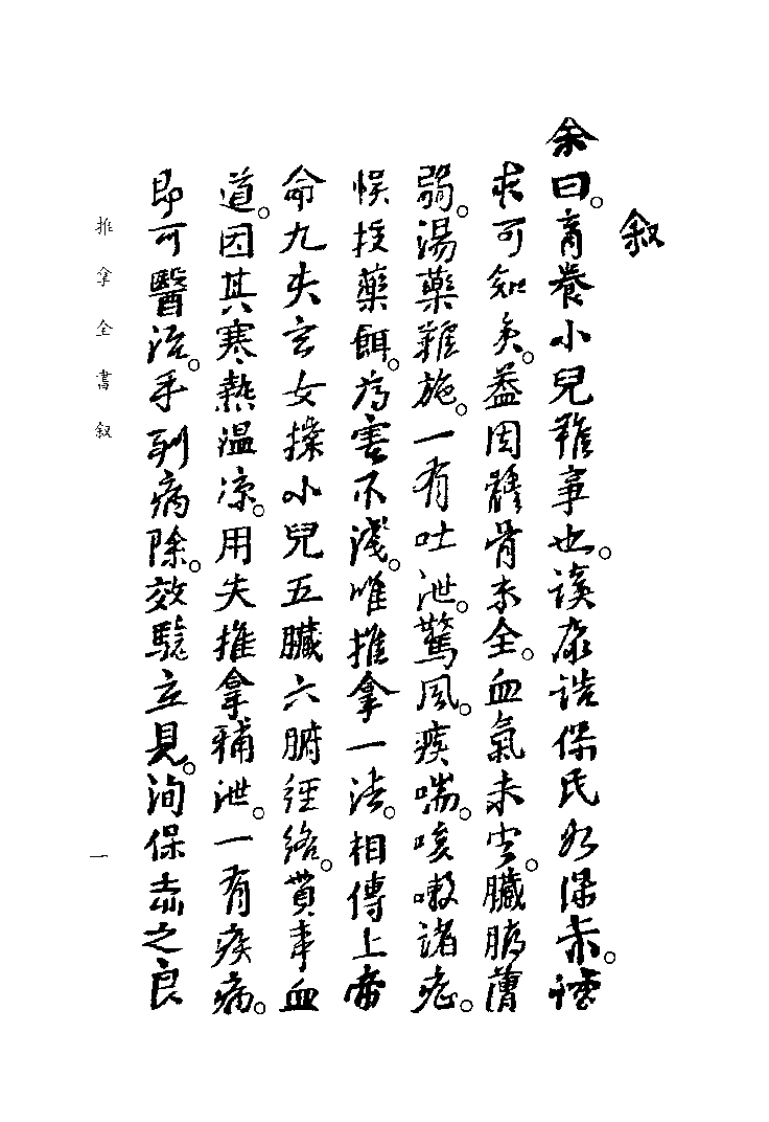 叙
余曰。育養小兒難事也。讀康誥保氏如保赤。誠
求可知矣。蓋因體骨未全。血氣未定。臟腑薄
弱。湯藥難施。一有吐泄。驚風。痰喘。咳嗽諸症。
悞投藥餌。為害不淺。唯推拿一法。相傳上帝
命九天玄女操小兒五臟六腑經絡。貫串血
道。因其寒熱温凉。用夫推拿補泄。一有疾病。
即可醫治。手到病除。效驗立見。洵保赤之良
推拿全書叙
一